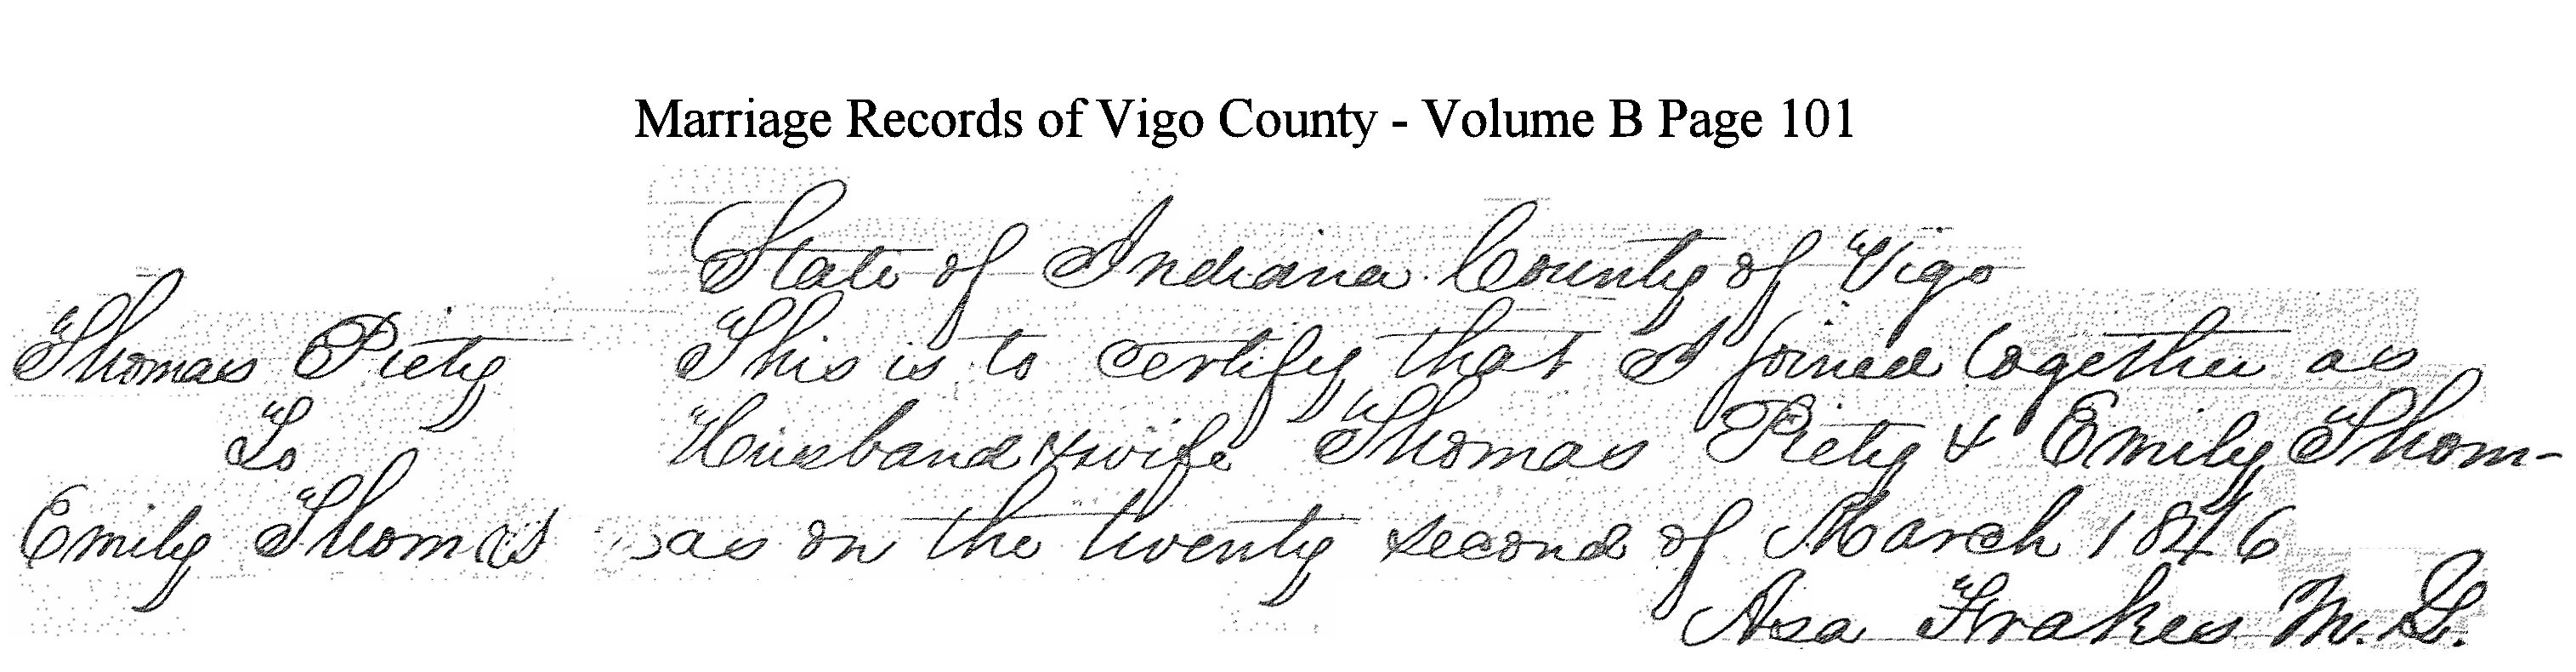 Marriage Records of Vigo County - Volume B Page 101
State of Indiana County of Vigo
Thomas Piety
To
Emily Thomas
This is to certify that I joined together as
Husband & wife Thomas Piety & Emily Thom-
as on the twenty second of March 1846
Asa Frakes M. G.